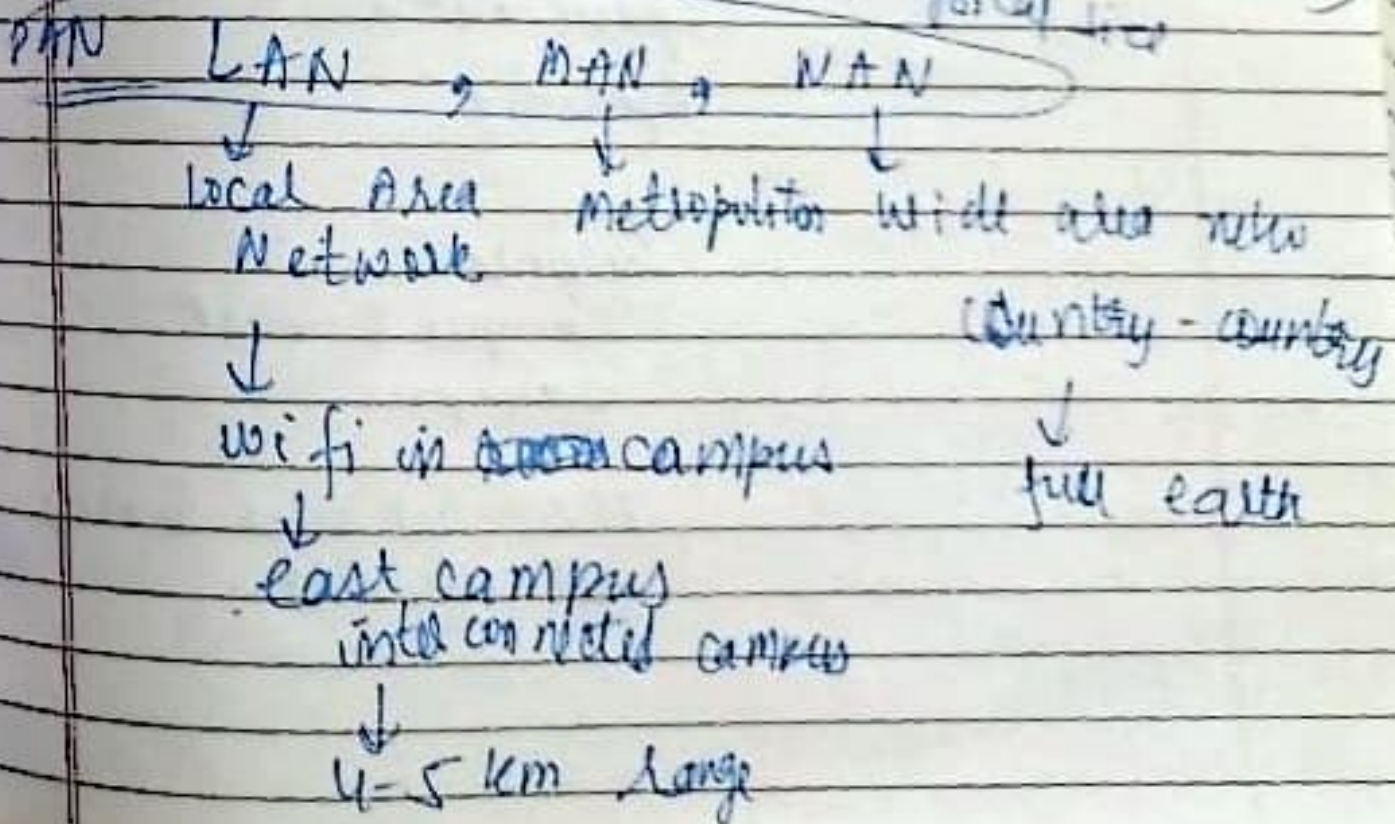 PAN LAN , MAN , WAN
Local Area Metropolitan wide area netw
Network
country - country
wifi in campus
full earth
east campus
inter connected campus
4-5 km range